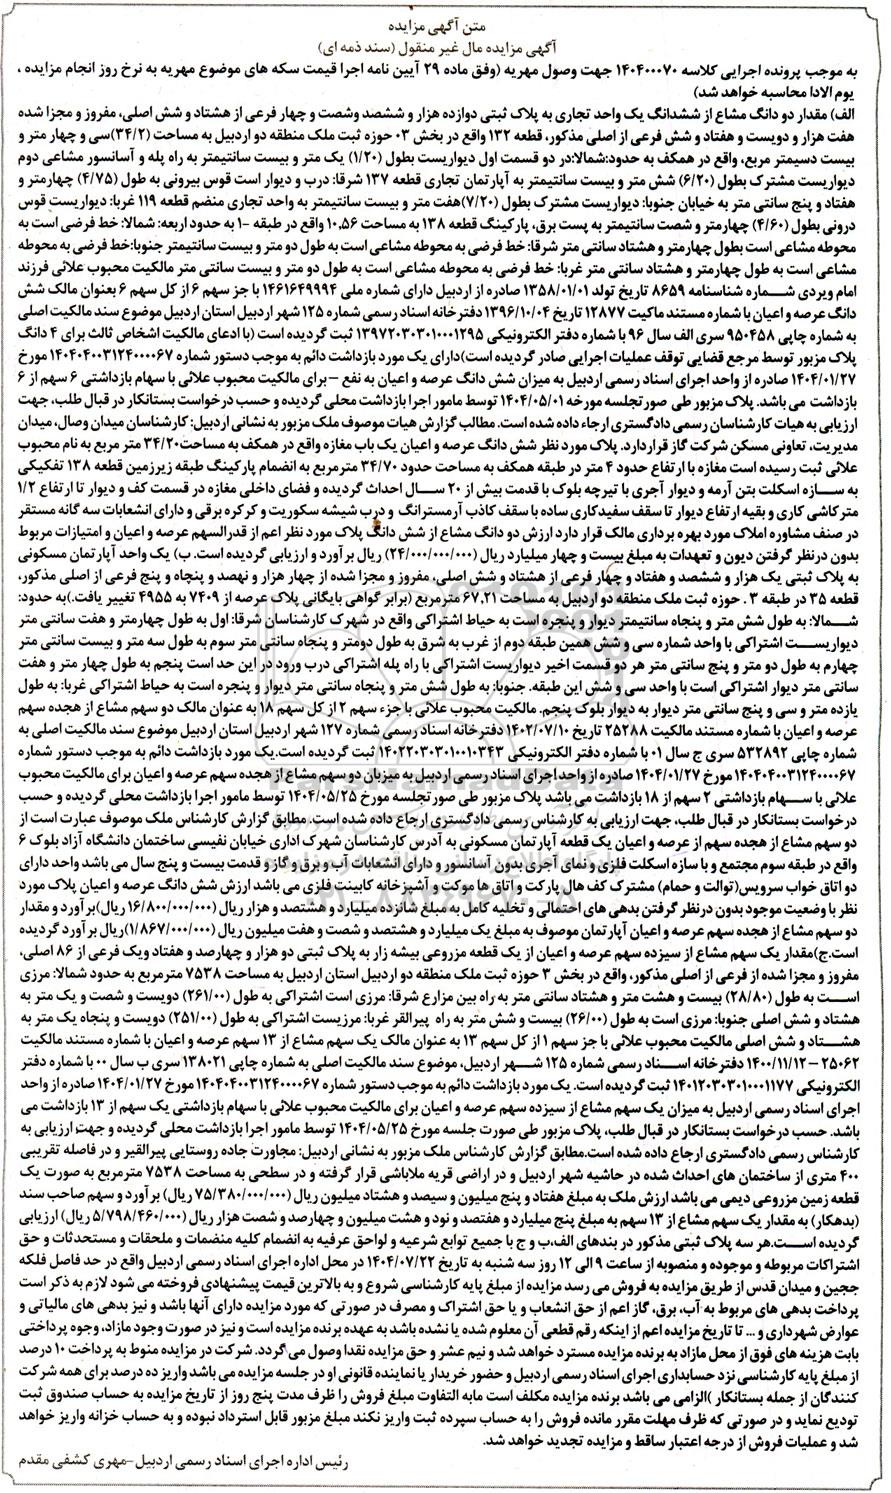 متن آگهی مزایده
آگهی مزایده مال غیر منقول (سند ذمه ای)
به موجب پرونده اجرایی کلاسه ۱۴۰۴۰۰۰۷۰ جهت وصول مهریه (وفق ماده ۲۹ آیین نامه اجرا قیمت سکه های موضوع مهریه به نرخ روز انجام مزایده ،
یوم الادا محاسبه خواهد شد)
الف) مقدار دو دانگ مشاع از ششدانگ یک واحد تجاری به پلاک ثبتی دوازده هزار و ششصد وشصت و چهار فرعی از هشتاد و شش اصلی، مفروز و مجزا شده
هفت هزار و دویست و هفتاد و شش فرعی از اصلی مذکور، قطعه ۱۳۲ واقع در بخش ۰۳ حوزه ثبت ملک منطقه دو اردبیل به مساحت (۳۴/۲)سی و چهار متر و
بیست دسیمتر مربع، واقع در همکف به حدود:شمالا:در دو قسمت اول دیواریست بطول (۱/۲۰) یک متر و بیست سانتیمتر به راه پله و آسانسور مشاعی دوم
دیواریست مشترک بطول (۶/۲۰) شش متر و بیست سانتیمتر به آپارتمان تجاری قطعه ۱۳۷ شرقا: درب و دیوار است قوس بیرونی به طول (۴/۷۵) چهارمتر و
هفتاد و پنج سانتی متر به خیابان جنوبا: دیواریست مشترک بطول (۷/۲۰)هفت متر و بیست سانتیمتر به واحد تجاری منضم قطعه ۱۱۹ غربا: دیواریست قوس
درونی بطول (۴/۶۰) چهارمتر و شصت سانتیمتر به پست برق، پارکینگ قطعه ۱۳۸ به مساحت ۱۰,۵۶ واقع در طبقه ۱- به حدود اربعه: شمالا: خط فرضی است به
محوطه مشاعی است بطول چهارمتر و هشتاد سانتی متر شرقا: خط فرضی به محوطه مشاعی است به طول دو متر و بیست سانتیمتر جنوبا:خط فرضی به محوطه
مشاعی است به طول چهارمتر و هشتاد سانتی متر غربا: خط فرضی به محوطه مشاعی است به طول دو متر و بیست سانتی متر مالکیت محبوب علائی فرزند
امام ویردی شماره شناسنامه ۸۶۵۹ تاریخ تولد ۱۳۵۸/۰۱/۰۱ صادره از اردبیل دارای شماره ملی ۱۴۶۱۶۴۹۹۹۴ با جز سهم ۶ از کل سهم ۶ بعنوان مالک شش
دانگ عرصه و اعیان با شماره مستند ماکیت ۱۲۸۷۷ تاریخ ۱۳۹۶/۱۰/۰۴ دفترخانه اسناد رسمی شماره ۱۲۵ شهر اردبیل استان اردبیل موضوع سند مالکیت اصلی
به شماره چاپی ۹۵۰۴۵۸ سری الف سال ۹۶ با شماره دفتر الکترونیکی ۱۳۹۷۲۰۳۰۳۰۱۰۰۰۱۲۹۵ ثبت گردیده است (با ادعای مالکیت اشخاص ثالث برای ۴ دانگ
پلاک مزبور توسط مرجع قضایی توقف عملیات اجرایی صادر گردیده است)دارای یک مورد بازداشت دائم به موجب دستور شماره ۱۴۰۴۰۴۰۰۳۱۲۴۰۰۰۰۶۷ مورخ
۱۴۰۴/۰۱/۲۷ صادره از واحد اجرای اسناد رسمی اردبیل به میزان شش دانگ عرصه و اعیان به نفع – برای مالکیت محبوب علائی با سهام بازداشتی ۶ سهم از ۶
بازداشت می باشد. پلاک مزبور طی صورتجلسه مورخه ۱۴۰۴/۰۵/۰۱ توسط مامور اجرا بازداشت محلی گردیده و حسب درخواست بستانکار در قبال طلب، جهت
ارزیابی به هیات کارشناسان رسمی دادگستری ارجاء داده شده است. مطالب گزارش هیات موصوف ملک مزبور به نشانی اردبیل: کارشناسان میدان وصال، میدان
مدیریت، تعاونی مسکن شرکت گاز قراردارد. پلاک مورد نظر شش دانگ عرصه و اعیان یک باب مغازه واقع در همکف به مساحت۳۴/۲۰ متر مربع به نام محبوب
علائی ثبت رسیده است مغازه با ارتفاع حدود ۴ متر در طبقه همکف به مساحت حدود ۳۴/۷۰ مترمربع به انضمام پارکینگ طبقه زیرزمین قطعه ۱۳۸ تفکیکی
به سازه اسکلت بتن آرمه و دیوار آجری با تیرچه بلوک با قدمت بیش از ۲۰ سال احداث گردیده و فضای داخلی مغازه در قسمت کف و دیوار تا ارتفاع ۱/۲
مترکاشی کاری و بقیه ارتفاع دیوار تا سقف سفیدکاری ساده با سقف کاذب آرمسترانگ و درب شیشه سکوریت و کرکره برقی و دارای انشعابات سه گانه مستقر
در صنف مشاوره املاک مورد بهره برداری مالک قرار دارد ارزش دو دانگ مشاع از شش دانگ پلاک مورد نظر اعم از قدرالسهم عرصه و اعیان و امتیازات مربوط
بدون درنظر گرفتن دیون و تعهدات به مبلغ بیست و چهار میلیارد ریال (۲۴/۰۰۰/۰۰۰/۰۰۰) ریال برآورد و ارزیابی گردیده است. ب) یک واحد آپارتمان مسکونی
به پلاک ثبتی یک هزار و ششصد و هفتاد و چهار فرعی از هشتاد و شش اصلی، مفروز و مجزا شده از چهار هزار و نهصد و پنچاه و پنج فرعی از اصلی مذکور،
قطعه ۳۵ در طبقه ۳ . حوزه ثبت ملک منطقه دو اردبیل به مساحت ۶۷,۲۱ مترمربع (برابر گواهی بایگانی پلاک عرصه از ۷۴۰۹ به ۴۹۵۵ تغییر یافت.)به حدود:
شمالا: به طول شش متر و پنجاه سانتیمتر دیوار و پنجره است به حیاط اشتراکی واقع در شهرک کارشناسان شرقا: اول به طول چهارمتر و هفت سانتی متر
دیواریست اشتراکی با واحد شماره سی و شش همین طبقه دوم از غرب به شرق به طول دومتر و پنجاه سانتی متر سوم به طول سه متر و بیست سانتی متر
چهارم به طول دو متر و پنج سانتی متر هر دو قسمت اخیر دیواریست اشتراکی با راه پله اشتراکی درب ورود در این حد است پنجم به طول چهار متر و هفت
سانتی متر دیوار اشتراکی است با واحد سی و شش این طبقه. جنوبا: به طول شش متر و پنجاه سانتی متر دیوار و پنجره است به حیاط اشتراکی غربا: به طول
یازده متر و سی و پنج سانتی متر دیوار به دیوار بلوک پنجم. مالکیت محبوب علائی با جزء سهم ۲ از کل سهم ۱۸ به عنوان مالک دو سهم مشاع از هجده سهم
عرصه و اعیان با شماره مستند مالکیت ۲۵۲۸۸ تاریخ ۱۴۰۲/۰۷/۱۰ دفترخانه اسناد رسمی شماره ۱۲۷ شهر اردبیل استان اردبیل موضوع سند مالکیت اصلی به
شماره چاپی ۵۳۲۸۹۲ سری ج سال ۰۱ با شماره دفتر الکترونیکی ۱۴۰۲۲۰۳۰۳۰۱۰۰۱۰۳۴۳ ثبت گردیده است.یک مورد بازداشت دائم به موجب دستور شماره
۱۴۰۴۰۴۰۰۳۱۲۴۰۰۰۰۶۷ مورخ ۱۴۰۴/۰۱/۲۷ صادره از واحد اجرای اسناد رسمی اردبیل به میزبان دو سهم مشاع از هجده سهم عرصه و اعیان برای مالکیت محبوب
علائی با سهام بازداشتی ۲ سهم از ۱۸ بازداشت می باشد پلاک مزبور طی صورتجلسه مورخ ۱۴۰۴/۰۵/۲۵ توسط مامور اجرا بازداشت محلی گردیده و حسب
درخواست بستانکار در قبال طلب، جهت ارزیابی به کارشناس رسمی دادگستری ارجاع داده شده است. مطابق گزارش کارشناس ملک موصوف عبارت است از
دو سهم مشاع از هجده سهم از عرصه و اعیان یک قطعه آپارتمان مسکونی به آدرس کارشناسان شهرک اداری خیابان نفیسی ساختمان دانشگاه آزاد بلوک ۶
واقع در طبقه سوم مجتمع و با سازه اسکلت فلزی و نمای آجری بدون آسانسور و دارای انشعابات آب و برق و گاز و قدمت بیست و پنج سال می باشد واحد دارای
دو اتاق خواب سرویس(توالت و حمام) مشترک کف هال پارکت و اتاق ها موکت و آشپزخانه کابینت فلزی می باشد ارزش شش دانگ عرصه و اعیان پلاک مورد
نظر با وضعیت موجود بدون درنظر گرفتن بدهی های احتمالی و تخلیه کامل به مبلغ شانزده میلیارد و هشتصد و هزار ریال (۱۶/۸۰۰/۰۰۰/۰۰۰ ریال)برآورد و مقدار
دو سهم مشاع از هجده سهم عرصه و اعیان آپارتمان موصوف به مبلغ یک میلیارد و هشتصد و شصت و هفت میلیون ریال (۱/۸۶۷/۰۰۰/۰۰۰)ریال برآورد گردیده
است.ج)مقدار یک سهم مشاع از سیزده سهم عرصه و اعیان از یک قطعه مزروعی بیشه زار به پلاک ثبتی دو هزار و چهارصد و هفتاد ویک فرعی از ۸۶ اصلی،
مفروز و مجزا شده از فرعی از اصلی مذکور، واقع در بخش ۳ حوزه ثبت ملک منطقه دو اردبیل استان اردبیل به مساحت ۷۵۳۸ مترمربع به حدود شمالا: مرزی
است به طول (۲۸/۸۰) بیست و هشت متر و هشتاد سانتی متر به راه بین مزارع شرقا: مرزی است اشتراکی به طول (۲۶۱/۰۰) دویست و شصت و یک متر به
هشتاد و شش اصلی جنوبا: مرزی است به طول (۲۶/۰۰) بیست و شش متر به راه پیرالقر غربا: مرزیست اشتراکی به طول (۲۵۱/۰۰) دویست و پنجاه یک متر به
هشتاد و شش اصلی مالکیت محبوب علائی با جز سهم ۱ از کل سهم ۱۳ به عنوان مالک یک سهم مشاع از ۱۳ سهم عرصه و اعیان با شماره مستند مالکیت
۲۵۰۶۲ – ۱۴۰۰/۱۱/۱۲ دفترخانه اسناد رسمی شماره ۱۲۵ شهر اردبیل، موضوع سند مالکیت اصلی به شماره چاپی ۱۳۸۰۲۱ سری ب سال ۰۰ با شماره دفتر
الکترونیکی ۱۴۰۱۲۰۳۰۳۰۱۰۰۰۱۱۷۷ ثبت گردیده است. یک مورد بازداشت دائم به موجب دستور شماره ۱۴۰۴۰۴۰۰۳۱۲۴۰۰۰۰۶۷ مورخ ۱۴۰۴/۰۱/۲۷ صادره از واحد
اجرای اسناد رسمی اردبیل به میزان یک سهم مشاع از سیزده سهم عرصه و اعیان برای مالکیت محبوب علائی با سهام بازداشتی یک سهم از ۱۳ بازداشت می
باشد. حسب درخواست بستانکار در قبال طلب، پلاک مزبور طی صورت جلسه مورخ ۱۴۰۴/۰۵/۲۵ توسط مامور اجرا بازداشت محلی گردیده و جهت ارزیابی به
کارشناس رسمی دادگستری ارجاع داده شده است.مطابق گزارش کارشناس ملک مزبور به نشانی اردبیل: مجاورت جاده روستایی پیرالقیر و در فاصله تقریبی
۴۰۰ متری از ساختمان های احداث شده در حاشیه شهر اردبیل و در اراضی قریه ملاباشی قرار گرفته و در سطحی به مساحت ۷۵۳۸ مترمربع به صورت یک
قطعه زمین مزروعی دیمی می باشد ارزش ملک به مبلغ هفتاد و پنج میلیون و سیصد و هشتاد میلیون ریال (۷۵/۳۸۰/۰۰۰/۰۰۰ ریال) برآورد و سهم صاحب سند
(بدهکار) به مقدار یک سهم مشاع از ۱۳ سهم به مبلغ پنج میلیارد و هفتصد و نود و هشت میلیون و چهارصد و شصت هزار ریال (۵/۷۹۸/۴۶۰/۰۰۰ ریال) ارزیابی
گردیده است.هر سه پلاک ثبتی مذکور در بندهای الف،ب و ج با جمیع توابع شرعیه و لواحق عرفیه به انضمام کلیه منضمات و ملحقات و مستحدثات و حق
اشتراکات مربوطه و موجوده و منصوبه از ساعت ۹ الی ۱۲ روز سه شنبه به تاریخ ۱۴۰۴/۰۷/۲۲ در محل اداره اجرای اسناد رسمی اردبیل واقع در حد فاصل فلکه
ججین و میدان قدس از طریق مزایده به فروش می رسد مزایده از مبلغ پایه کارشناسی شروع و به بالاترین قیمت پیشنهادی فروخته می شود لازم به ذکر است
پرداخت بدهی های مربوط به آب، برق، گاز اعم از حق انشعاب و یا حق اشتراک و مصرف در صورتی که مورد مزایده دارای آنها باشد و نیز بدهی های مالیاتی و
عوارض شهرداری و ... تا تاریخ مزایده اعم از اینکه رقم قطعی آن معلوم شده یا نشده باشد به عهده برنده مزایده است و نیز در صورت وجود مازاد، وجوه پرداختی
بابت هزینه های فوق از محل مازاد به برنده مزایده مسترد خواهد شد و نیم عشر و حق مزایده نقدا وصول می گردد. شرکت در مزایده منوط به پرداخت ۱۰ درصد
از مبلغ پایه کارشناسی نزد حسابداری اجرای اسناد رسمی اردبیل و حضور خریدار یا نماینده قانونی او در جلسه مزایده می باشد واریز ده درصد برای همه شرکت
کنندگان از جمله بستانکار )الزامی می باشد برنده مزایده مکلف است مابه التفاوت مبلغ فروش را ظرف مدت پنج روز از تاریخ مزایده به حساب صندوق ثبت
تودیع نماید و در صورتی که ظرف مهلت مقرر مانده فروش را به حساب سپرده ثبت واریز نکند مبلغ مزبور قابل استرداد نبوده و به حساب خزانه واریز خواهد
شد و عملیات فروش از درجه اعتبار ساقط و مزایده تجدید خواهد شد.
رئیس اداره اجرای اسناد رسمی اردبیل-مهری کشفی مقدم